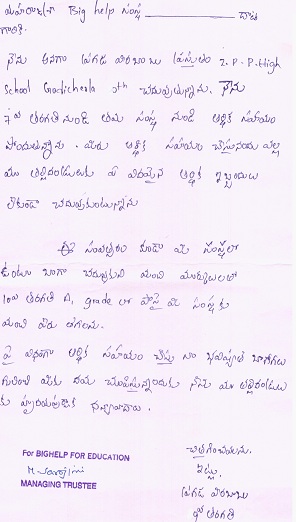 మహారాజశ్రీ Big help సంస్థ ____________ దాత
గారికి.
నేను అనగా ప్రగడ వీరబాబు ప్రస్తుతం Z.P.P. High
School Gadicherla 9th చదువుతున్నాను. నేను
7వ తరగతి నుండి తమ సంస్థ నుండి ఆర్థిక సహాయం
పొందుతున్నాను. మీరు ఆర్థిక సహాయం చేస్తునందు వల్ల
మా తల్లిదండ్రులకు ఏ విధమైన ఆర్థిక ఇబ్బందులు
లేకుండా చదువుకుంటున్నాను
ఈ సంవత్సరం కూడా మీ సంస్థలో
ఉంటూ బాగా చదువుకుని మంచి మార్కులతో
10వ తరగతి A, grade లో పాసై మీ సంస్థకు
మంచి పేరు తెగలను.
పై విధంగా ఆర్థిక సహాయం చేస్తు నా భవిష్యత్ బాగోగలు
గురించి మీకు దయ చూపిస్తున్నందుకు నేను మా తల్లిదండ్రులు
కు హృదయపూర్వక నమస్కారాలు.
చిత్తగించవలెను.
ఇట్లు,
ప్రగడ వీరబాబు
9వ తరగతి
For BIGHELP FOR EDUCATION
MANAGING TRUSTEE